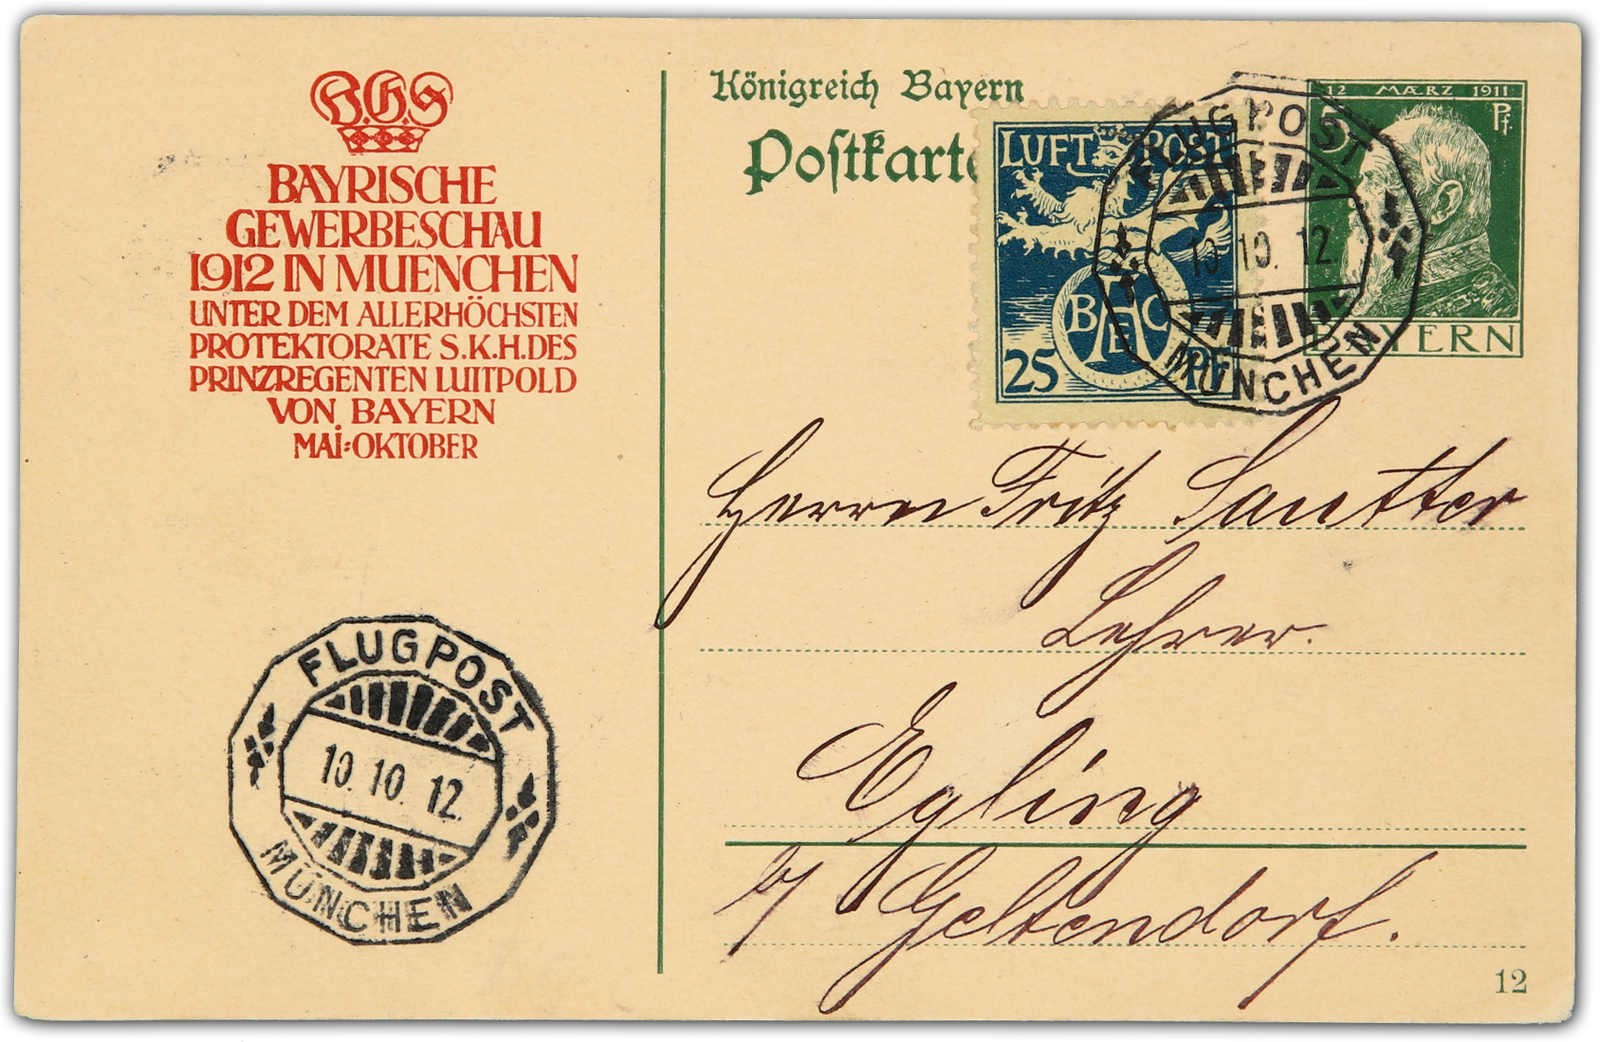 B.G.S
BAYRISCHE
GEWERBESCHAU
1912 IN MUENCHEN
UNTER DEM ALLERHÖCHSTEN
PROTEKTORATE S.K.H.DES
PRINZREGENTEN LUITPOLD
VON BAYERN
MAI-OKTOBER
FLUGPOST
10.10.12.
MÜNCHEN
Königreich Bayern
Postkarte
LUFT POST
BAEC
25 Pf
FLUGPOST
10.10.12.
MÜNCHEN
12 MÆRZ 1911
5 Pf.
BAYERN
Herrn Fritz Sautter
Lehrer.
Egling
b/ Geltendorf.
12